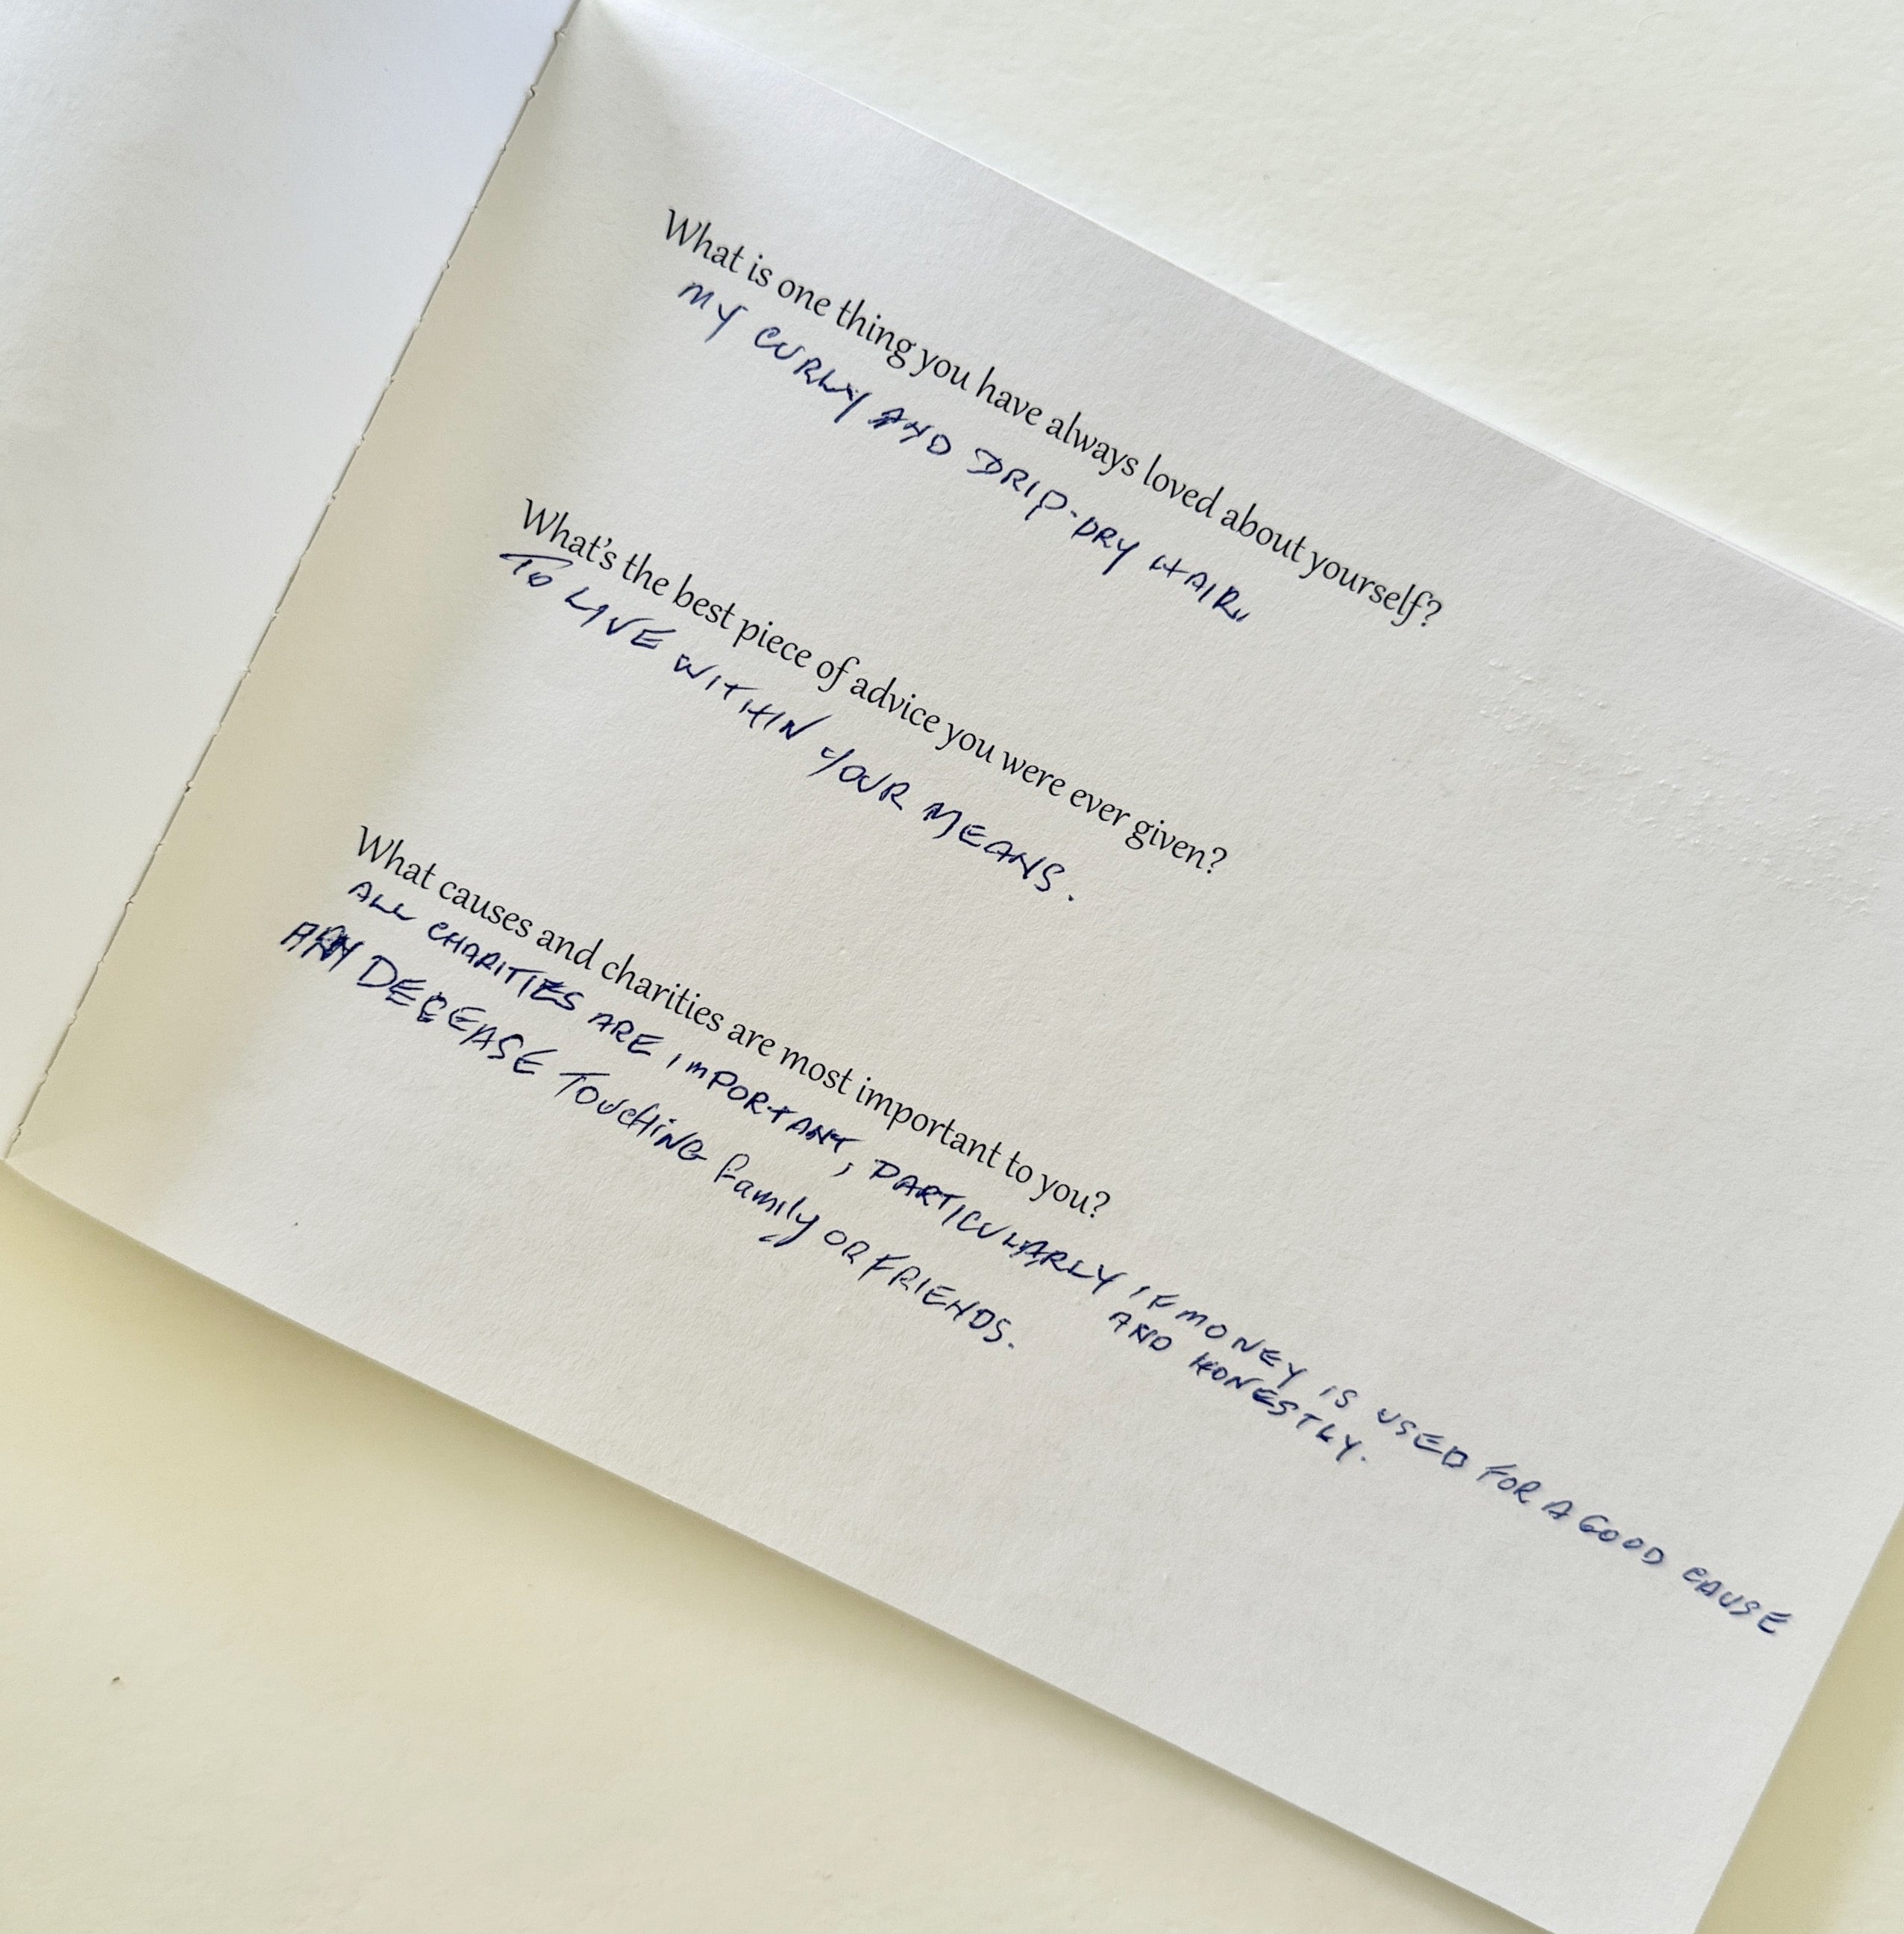 What is one thing you have always loved about yourself?
MY CURLY AND DRIP-DRY HAIR.
What's the best piece of advice you were ever given?
TO LIVE WITHIN YOUR MEANS.
What causes and charities are most important to you?
ALL CHARITIES ARE IMPORTANT, PARTICULARLY IF MONEY IS USED FOR A GOOD CAUSE
AND HONESTLY.
ANY DECEASE TOUCHING family OR FRIENDS.